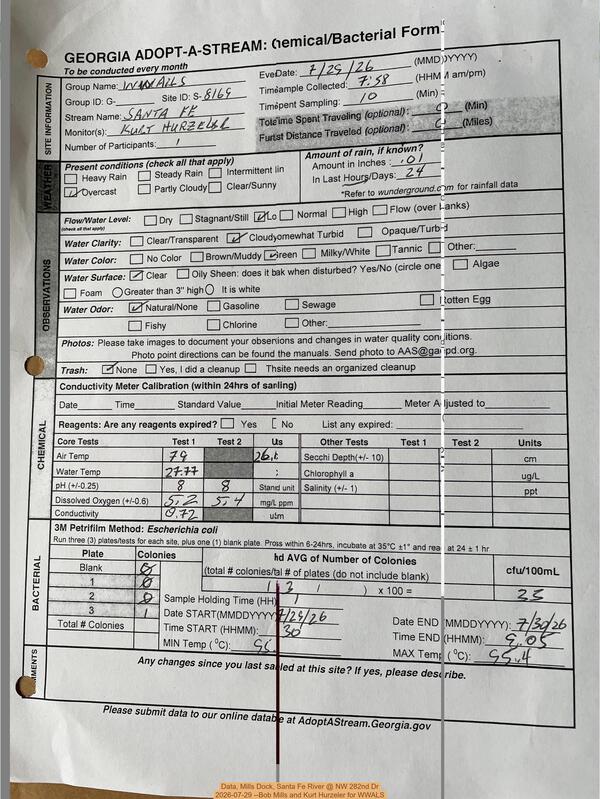 GEORGIA ADOPT-A-STREAM: Chemical/Bacterial Form
To be conducted every month
SITE INFORMATION
Group Name: WWALS
EveDate: 7/29/26 (MMDDYYYY)
Group ID: G- Site ID: S- 8169
Timeample Collected: 7:58 (HHMM am/pm)
Stream Name: SANTA FE
Timepent Sampling: 10 (Min)
Monitor(s): KURT HURZELER
Totalime Spent Traveling (optional): 0 (Min)
Number of Participants: 1
Furtst Distance Traveled (optional): 0 (Miles)
WEATHER
Present conditions (check all that apply)
Heavy Rain Steady Rain Intermittent lin
Overcast Partly Cloudy Clear/Sunny
Amount of rain, if known?
Amount in Inches : .01
In Last Hours/Days: 24
*Refer to wunderground.com for rainfall data
OBSERVATIONS
Flow/Water Level: Dry Stagnant/Still Lo Normal High Flow (over banks)
(check all that apply)
Water Clarity: Clear/Transparent Cloudyomewhat Turbid Opaque/Turbid
Water Color: No Color Brown/Muddy Green Milky/White Tannic Other:
Water Surface: Clear Oily Sheen: does it bak when disturbed? Yes/No (circle one Algae
Foam Greater than 3" high It is white
Water Odor: Natural/None Gasoline Sewage Rotten Egg
Fishy Chlorine Other:
Photos: Please take images to document your obsenions and changes in water quality conditions.
Photo point directions can be found the manuals. Send photo to AAS@gaepd.org.
Trash: None Yes, I did a cleanup Thsite needs an organized cleanup
CHEMICAL
Conductivity Meter Calibration (within 24hrs of sanling)
Date Time Standard Value Initial Meter Reading Meter Adjusted to
Reagents: Are any reagents expired? Yes No List any expired:
Core Tests Test 1 Test 2 Us Other Tests Test 1 Test 2 Units
Air Temp 79 Secchi Depth(+/- 10) cm
Water Temp 27.77 Chlorophyll a ug/L
pH (+/-0.25) 8 8 Stand unit Salinity (+/- 1) ppt
Dissolved Oxygen (+/-0.6) 5.2 5.4 mg/L ppm
Conductivity 0.72
BACTERIAL
3M Petrifilm Method: Escherichia coli
Run three (3) plates/tests for each site, plus one (1) blank plate. Pross within 6-24hrs, incubate at 35°C ±1° and read at 24 ± 1 hr
Plate Colonies
Blank 0
1 0
2 0
3 1
Total # Colonies
hd AVG of Number of Colonies
(total # colonies/tal # of plates (do not include blank)
cfu/100mL
1 / 3 x 100 = 33
Sample Holding Time (HH) 1
Date START(MMDDYYYY 7/29/26
Date END (MMDDYYYY): 7/30/26
Time START (HHMM): 30
Time END (HHMM): 9:05
MIN Temp (°C):
MAX Temp (°C): 95.4
COMMENTS
Any changes since you last sapled at this site? If yes, please describe.
Please submit data to our online databe at AdoptAStream.Georgia.gov
Data, Mills Dock, Santa Fe River @ NW 282nd Dr
2026-07-29 --Bob Mills and Kurt Hurzeler for WWALS